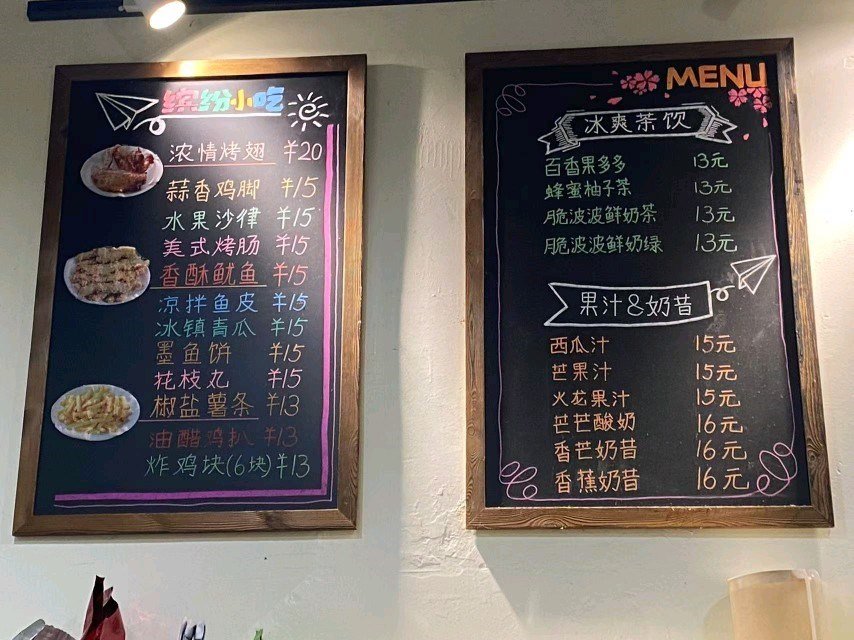 缤纷小吃
浓情烤翅 ¥20
蒜香鸡脚 ¥15
水果沙律 ¥15
美式烤肠 ¥15
香酥鱿鱼 ¥15
凉拌鱼皮 ¥15
冰镇青瓜 ¥15
墨鱼饼 ¥15
花枝丸 ¥15
椒盐薯条 ¥13
油醋鸡扒 ¥13
炸鸡块(6块) ¥13
MENU
冰爽茶饮
百香果多多 13元
蜂蜜柚子茶 13元
脆波波鲜奶茶 13元
脆波波鲜奶绿 13元
果汁&奶昔
西瓜汁 15元
芒果汁 15元
火龙果汁 15元
芒芒酸奶 16元
香芒奶昔 16元
香蕉奶昔 16元